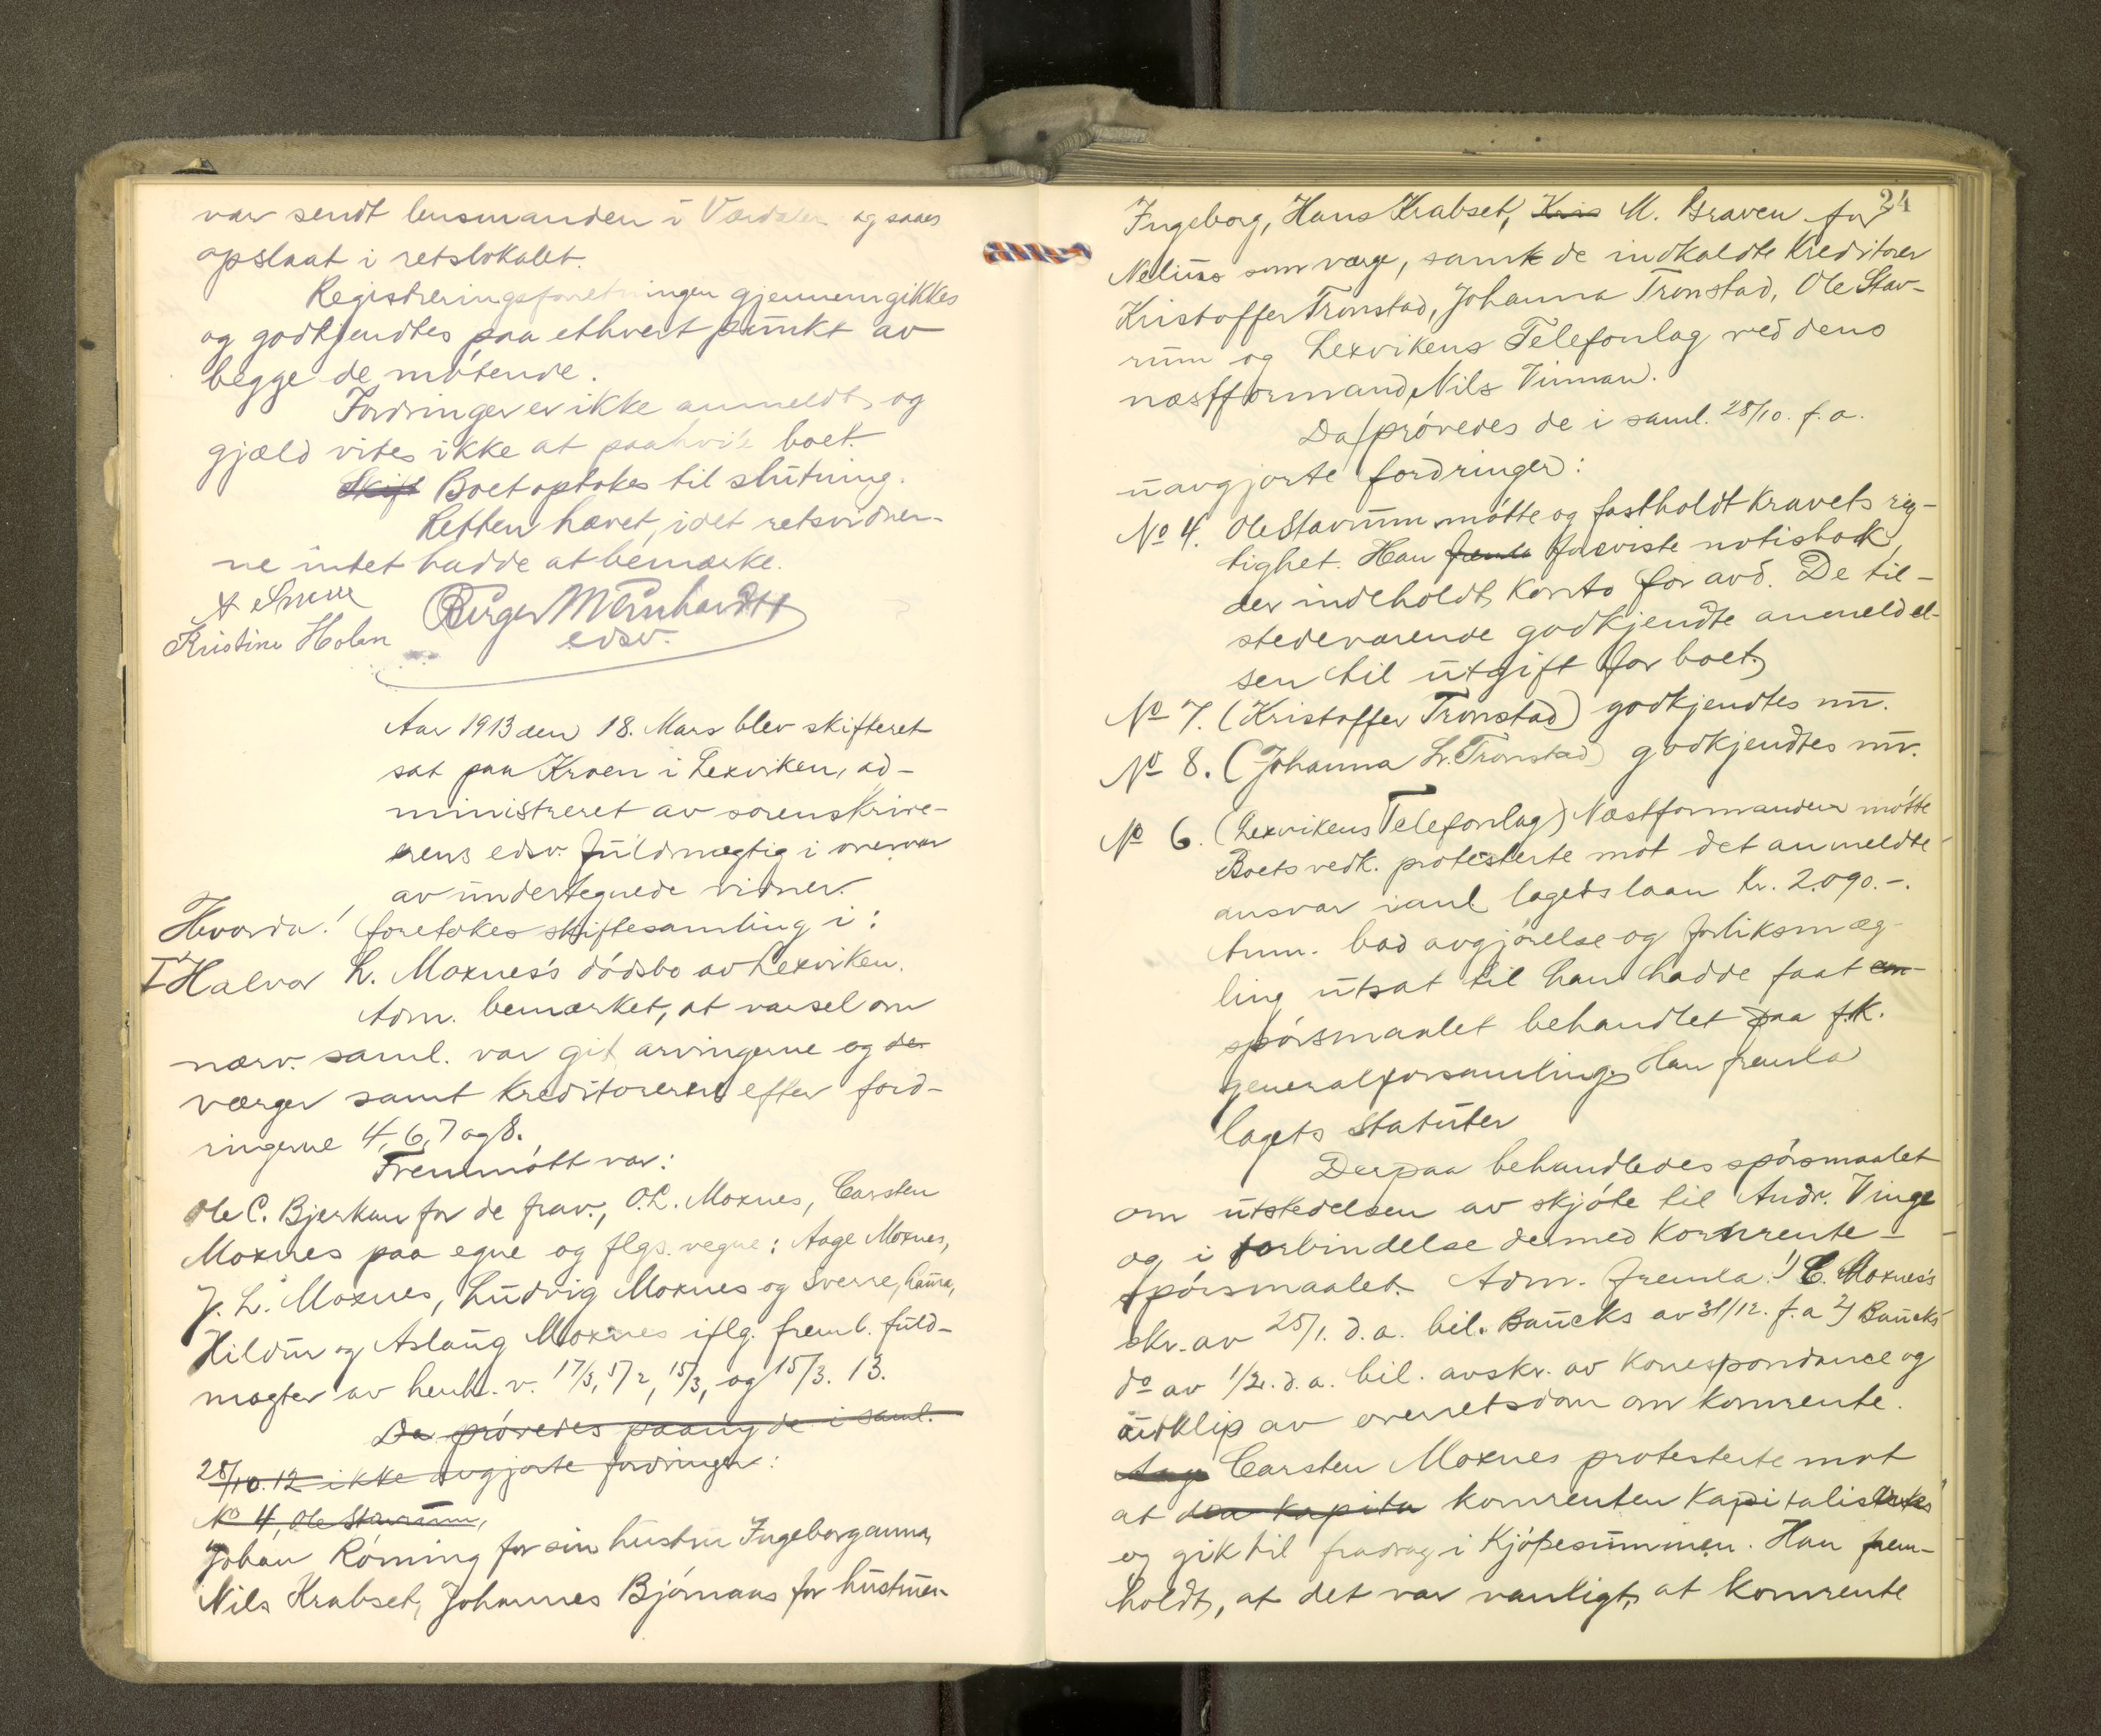 var sendt lensmanden i Værdalen og saaes
opslaat i retslokalet.
Registreringsforretningen gjennemgikkes
og godkjendtes paa ethvert punkt av
begge de møtende.
Fordringer er ikke anmeldt, og
gjæld vites ikke at paahvile boet.
Skift Boet optokes til slutning.
Retten hævet, idet retsvidner-
ne intet hadde at bemærke.
Birger M Bernhardtt
Kristine Holen edsv.
Aar 1913 den 18. Mars blev skifteret
sat paa Kroen i Lexviken, ad-
ministreret av sorenskrive-
rens edsv. fuldmægtig i overvær
av undertegnede vidner.
Hvorda! foretokes skiftesamling i:
I Halvor L. Moxnes's dødsbo av Lexviken.
Adm. bemærket, at varsel om
nærv. saml. var git arvingerne og de
værger samt kreditorerne efter ford-
ringerne 4, 6, 7 og 8.
Fremmøtt var:
Ole C. Bjerkan for de frav., O.L. Moxnes, Carsten
Moxnes paa egne og flgs. vegne: Aage Moxnes,
J. L. Moxnes, Ludvig Moxnes og Sverre, Laura,
Hildur og Aslaug Moxnes iflg. freml. fuld-
magter av henh. v. 17/3, 5/2, 15/3, og 15/3. 13.
Da prøvedes paany de i saml.
28/10.12 ikke avgjorte fordringer:
No 4, Ole Stavrum,
Johan Rørning for sin hustru Ingeborganna,
Nils Krabset, Johannes Bjørnaas for hustruen
24
Ingeborg, Hans Krabset, Kris M. Graven for
Nelius som værge, samt de indkaldte kreditorer
Kristoffer Tronstad, Johanna Tronstad, Ole Stav-
rum og Lexvikens Telefonlag ved dens
næstformand Nils Vinnan.
Da prøvedes de i saml. 28/10. f.a.
uavgjorte fordringer:
No 4. Ole Stavrum møtte og fastholdt kravets rig-
tighet. Han fremla foreviste notisbok,
der indeholdt konto for avd. De til-
stedeværende godkjendte anmeldel-
sen til utgift for boet.
No 7. (Kristoffer Tronstad) godkjendtes nu.
No 8. (Johanna L. Tronstad) godkjendtes nu.
No 6. (Lexvikens Telefonlag) Næstformanden møtte
Boets vedk. protesterte mot det anmeldte
ansvar i anl. lagets laan kr. 2.090.-.
Anm. bad avgjørelse og forliksmæg-
ling utsat til han hadde faat en-
spørsmaalet behandlet paa f.k.
generalforsamling. Han fremla
lagets statuter
Derpaa behandledes spørsmaalet
om utstedelsen av skjøte til Andr. Vinge
og i forbindelse dermed kornrente-
spørsmaalet. Adm. fremla: 1) C. Moxnes's
skr. av 25/1. d.a. bil. Baucks av 31/12. f.a 2) Baucks
do av 1/2. d.a. bil. avskr. av korrespondance og
utklip av overretsdom om kornrente.
Aage Carsten Moxnes protesterte mot
at den kapita kornrenten kapitalisertes
og gik til fradrag i kjøpesummen. Han frem-
holdt, at det var vanligt, at kornrente